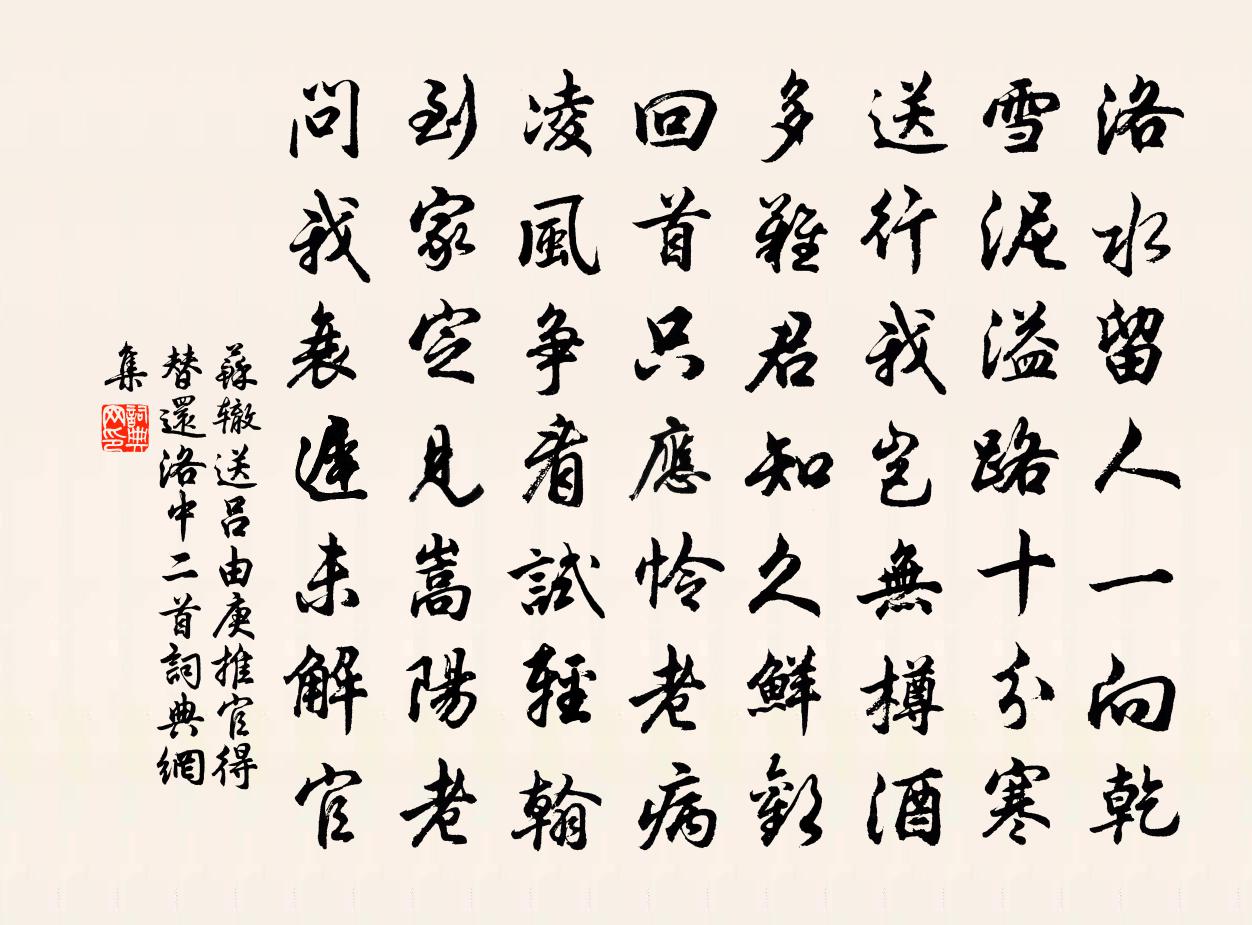 洛水留人一向乾
雪泥溢路十分寒
送行我豈無樽酒
多難君知久鮮歡
回首只應憐老病
凌風争看試輕翰
到家定見嵩陽老
問我衰遲未解官
蘇辙送吕由庚推官得
替還洛中二首詞典網
集
詞典网印